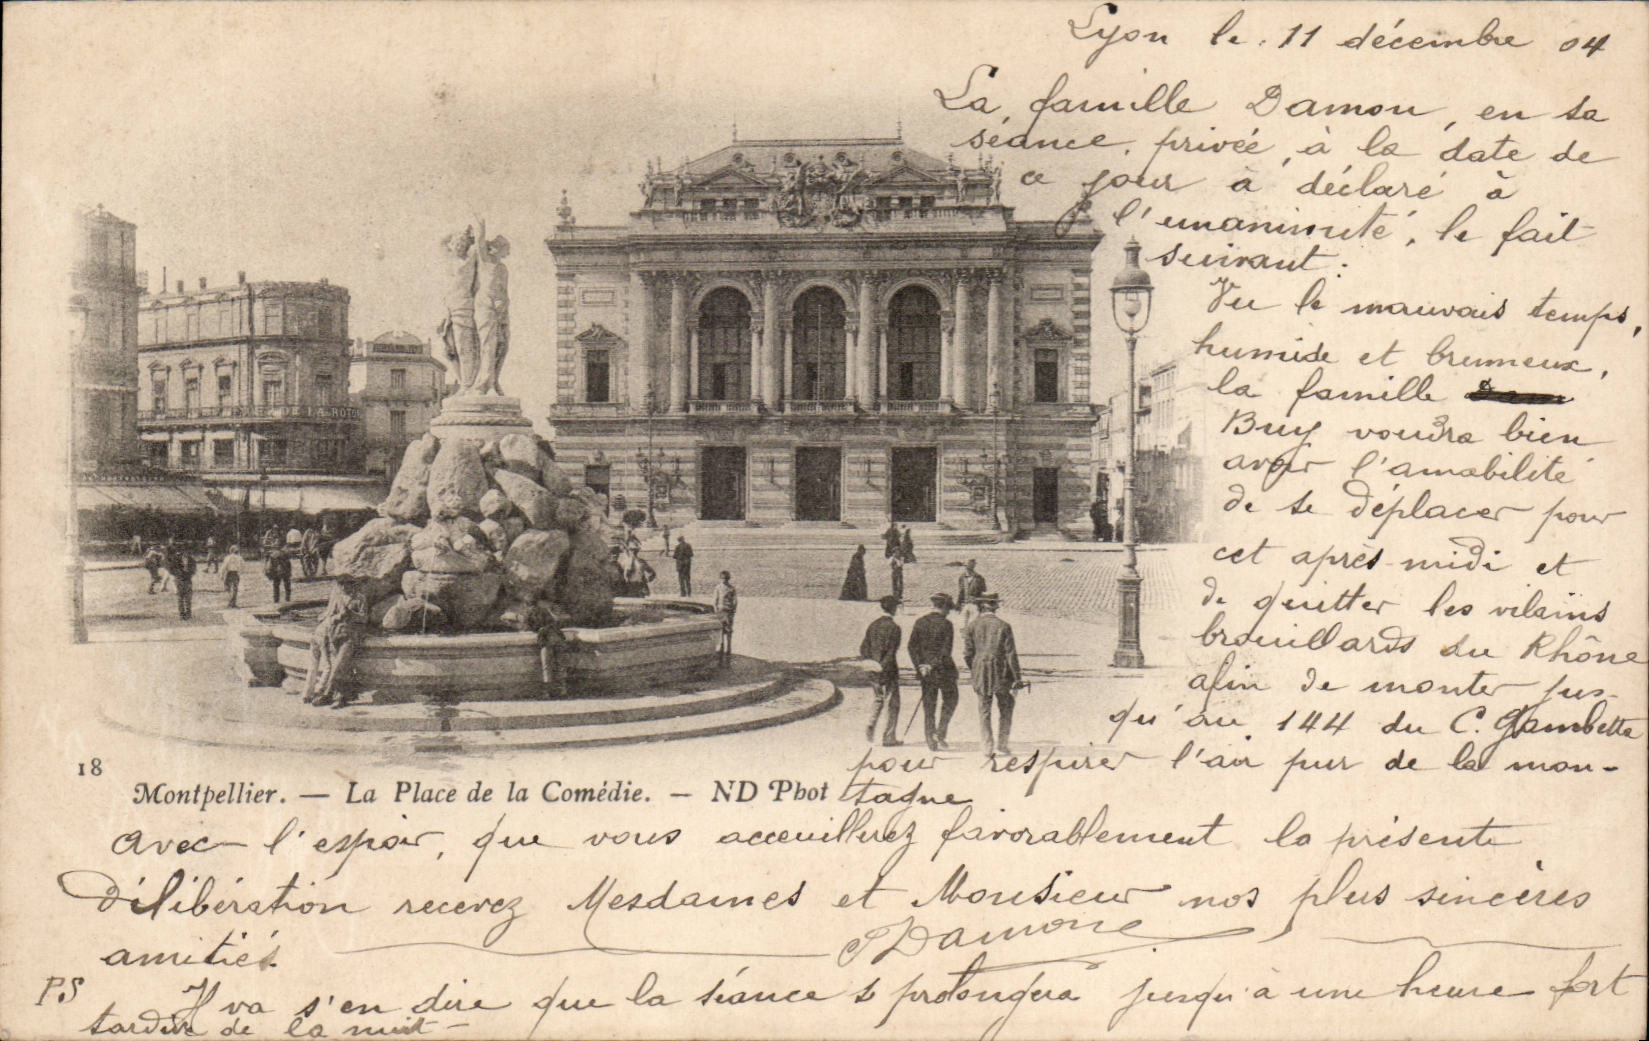 Lyon le 11 décembre 04
La famille Damon, en sa
séance privée, à la date de
ce jour à déclaré à
l'unanimité, le fait
suivant :
Vu le mauvais temps,
humide et brumeux,
la famille
Buy voudra bien
avoir l'amabilité
de se déplacer pour
cet après-midi et
de quitter les vilains
brouillards du Rhône
afin de monter jus-
qu'au 144 du C. Gambetta
pour respirer l'air pur de la mon-
tagne
18
Montpellier. — La Place de la Comédie. — ND Phot
avec l'espoir, que vous acceuillerez favorablement la présente
délibération recevez Mesdames et Monsieur nos plus sincères
amitiés.
Damon
PS Il va s'en dire que la séance se prolongera jusqu'à une heure fort
tardive de la nuit —